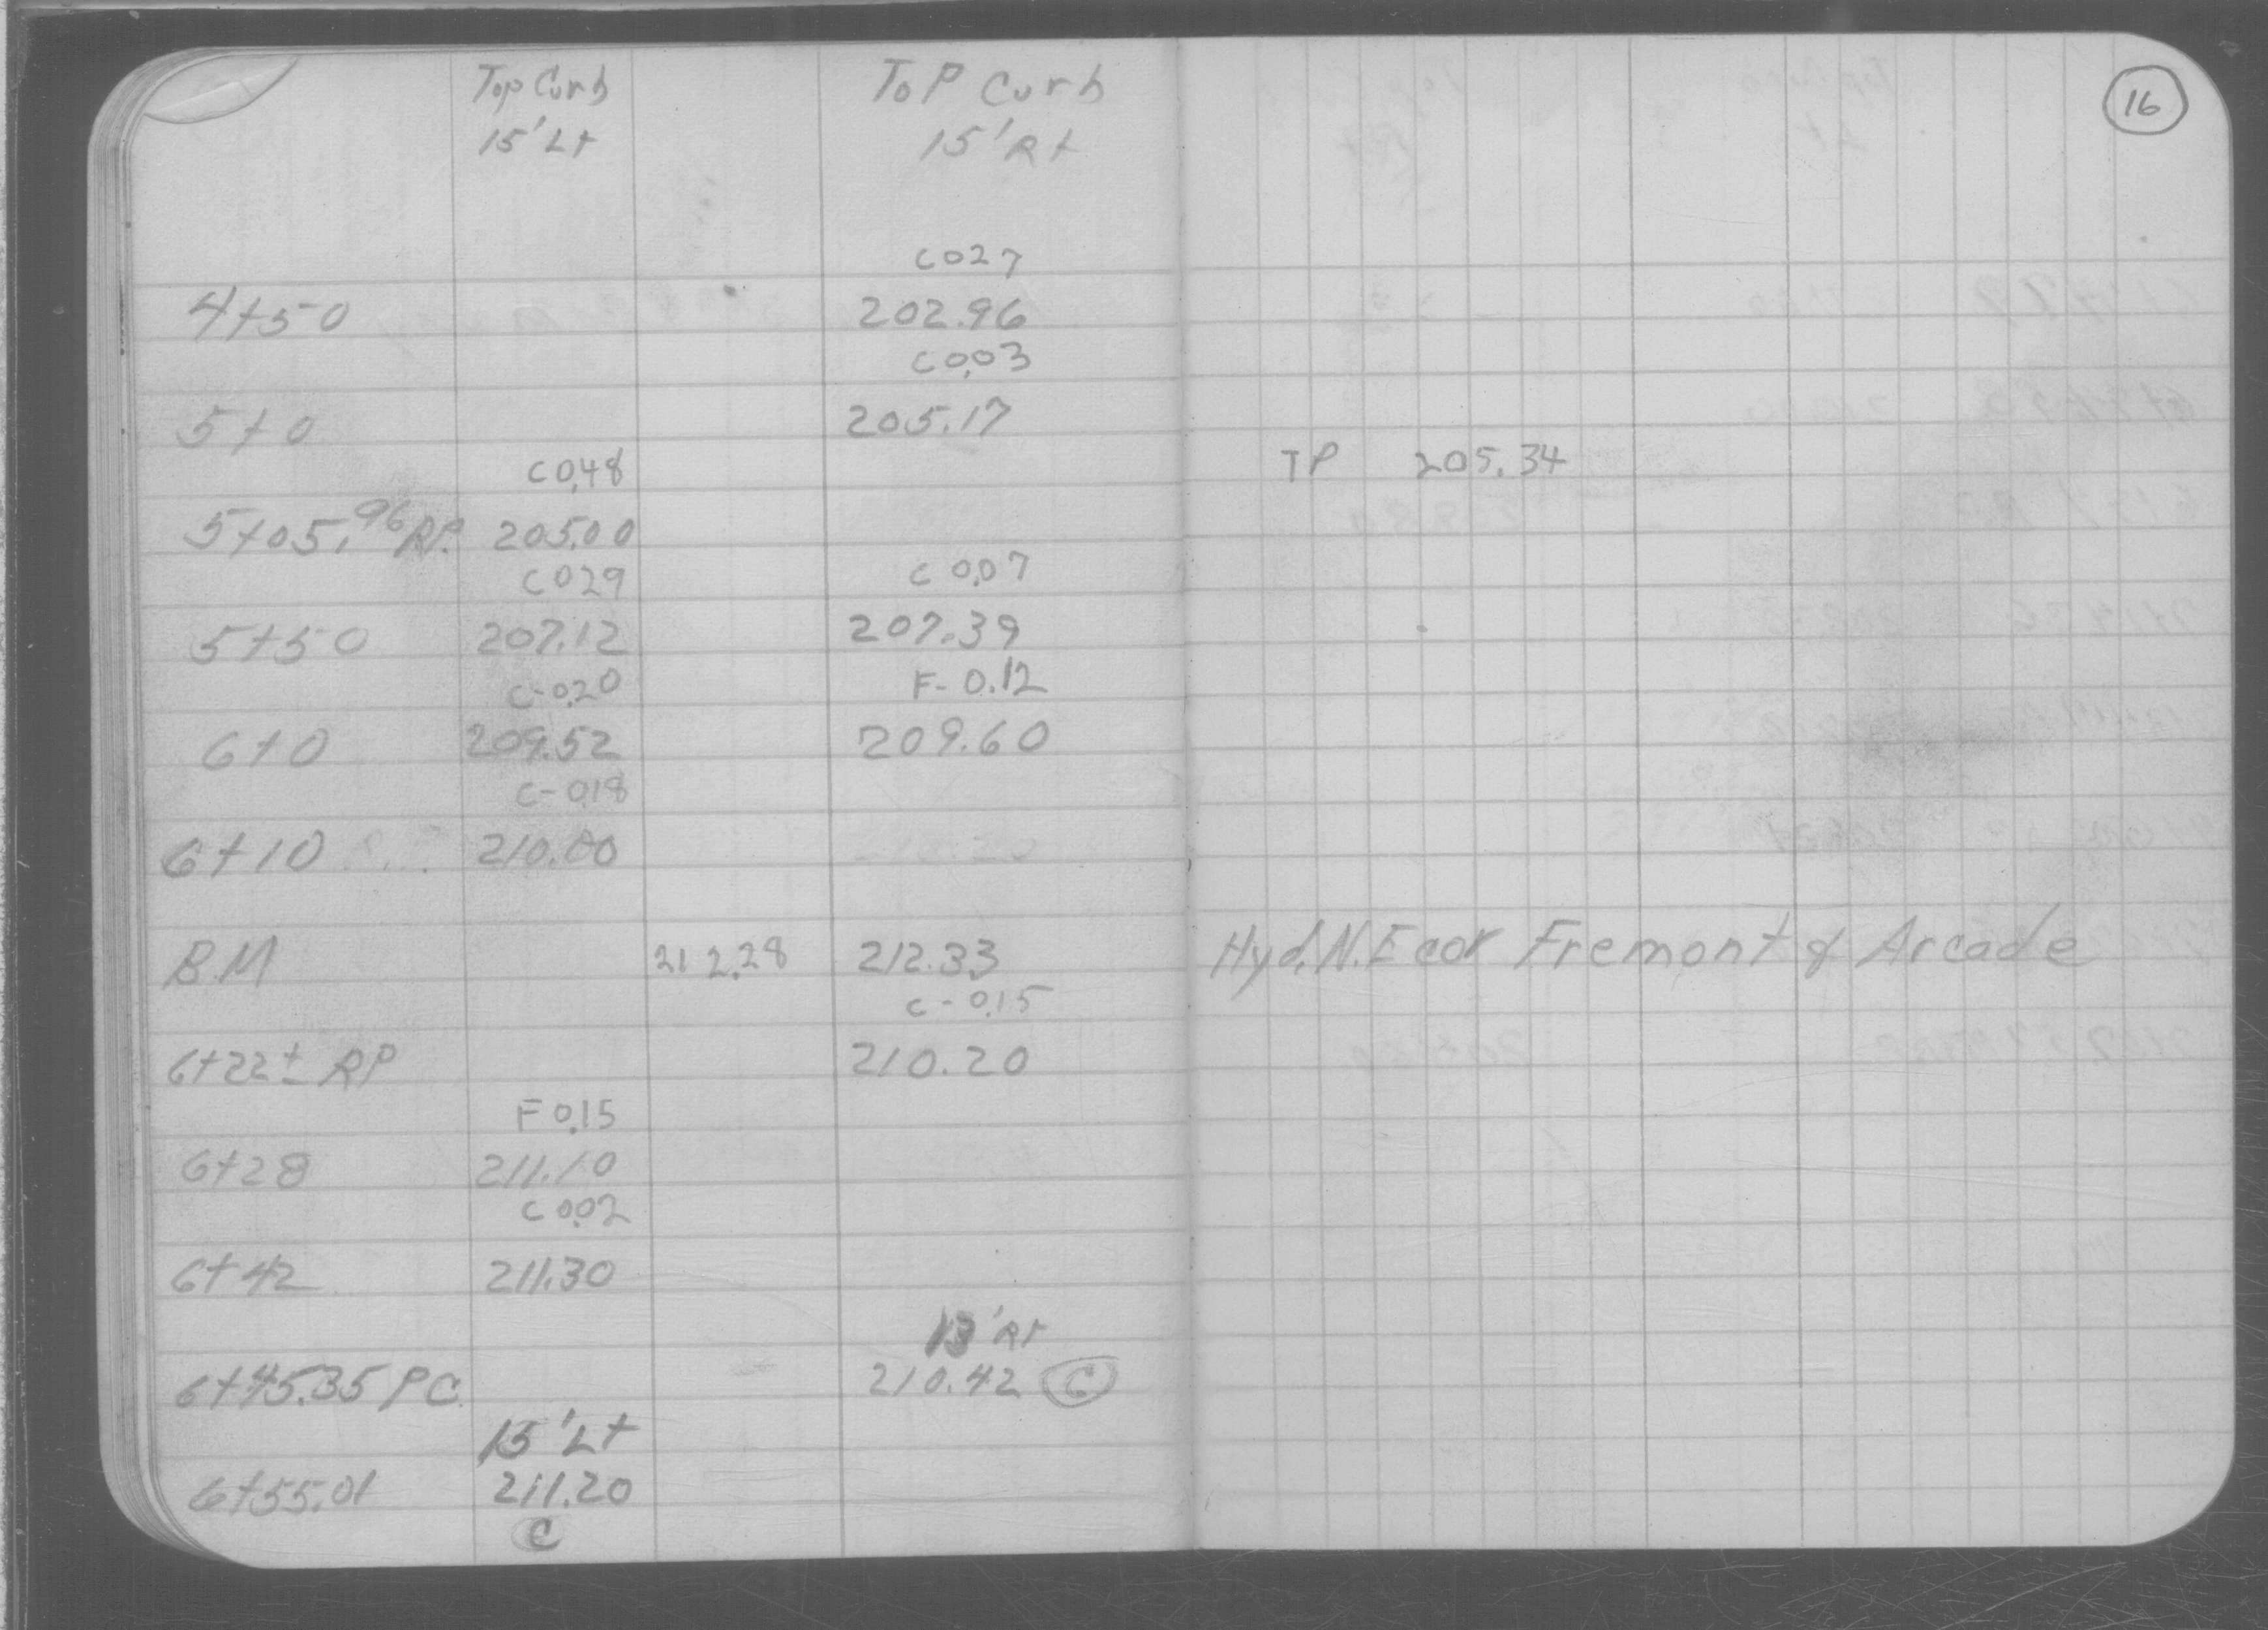 Top Curb ToP Curb
15' Lt 15' Rt
16
C 027
4+50 202.96
C 0.03
5+0 205.17
C 0.48 TP 205.34
5+05.96 RP. 205.00
C 029 C 0.07
5+50 207.12 207.39
C-0.20 F-0.12
6+0 209.52 209.60
C-0.18
6+10 210.00
BM 212.28 212.33 Hyd. N.E cor Fremont & Arcade
C-0.15
6+22± RP 210.20
F 0.15
6+28 211.10
C 0.02
6+42 211.30
13' Rt
6+45.35 PC. 210.42 C
15' Lt
6+55.01 211.20
C